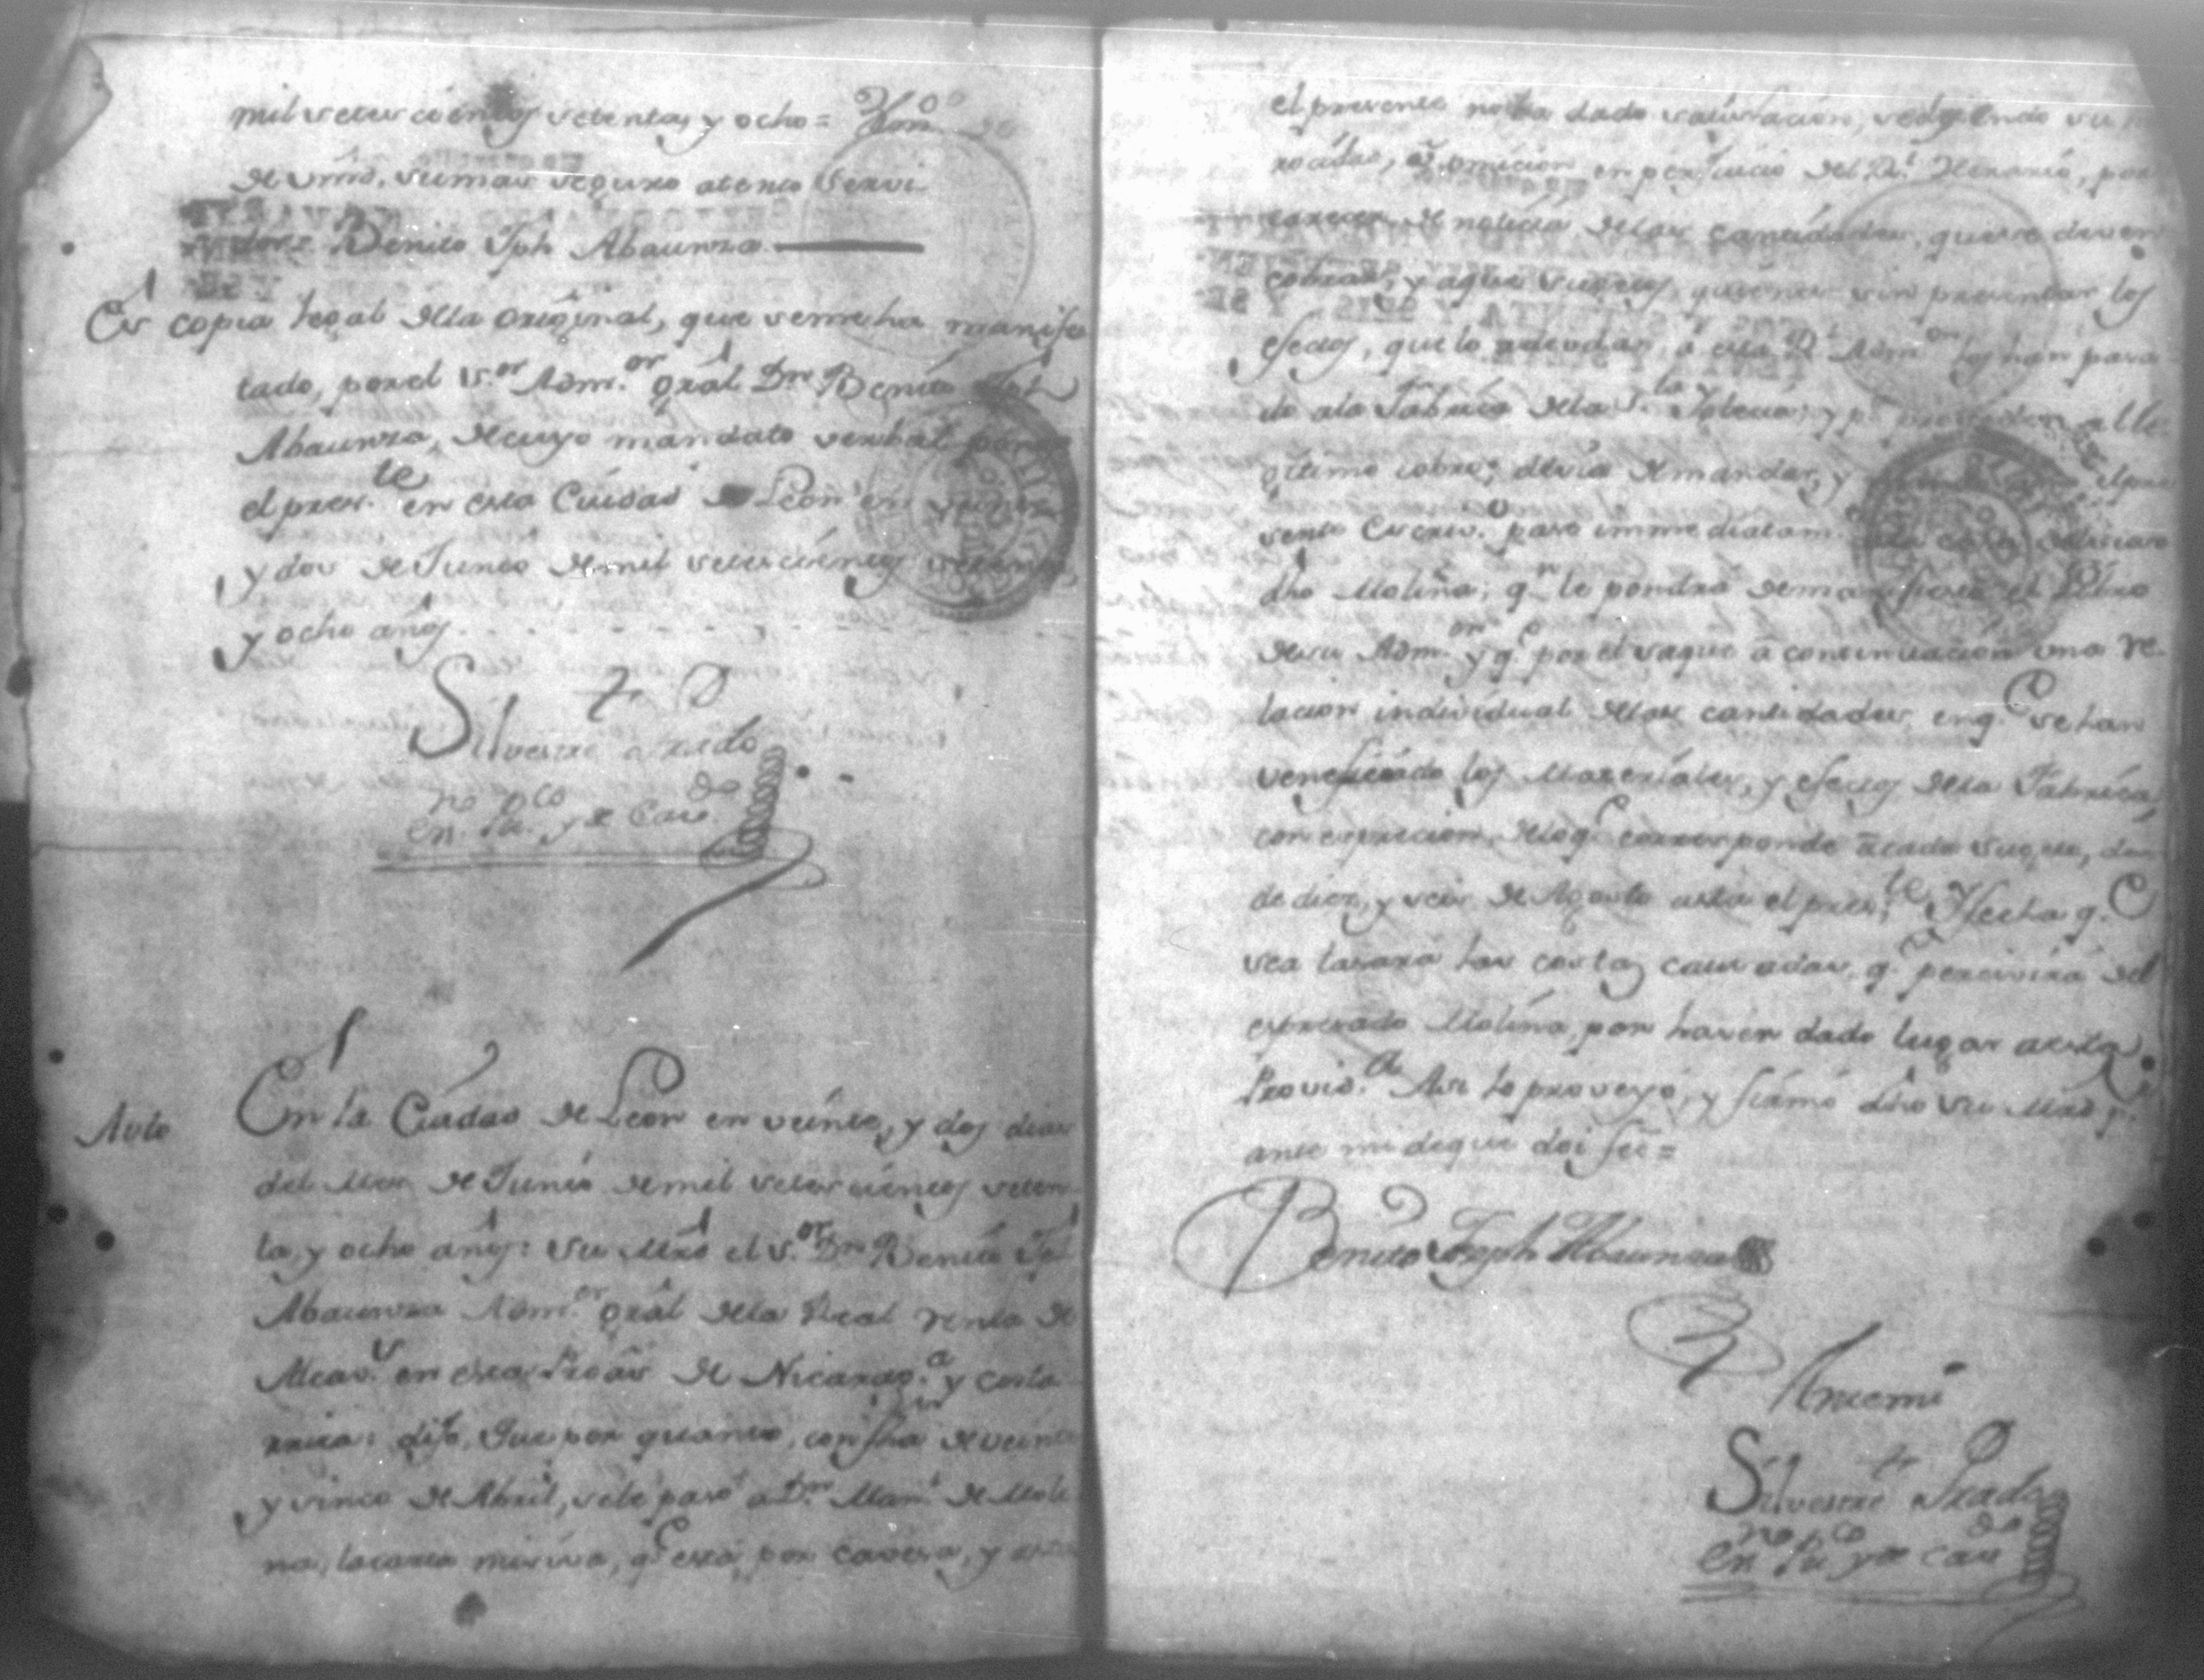 mil setescientos setenta, y ocho =
de vmd. su mas seguro atento servi-
dor = Benito Jph Abaunza
Es copia legal de la original, que se me ha manifes
tado, por el Sor. Admor. gral Dn Benito Jph
Abaunza, de cuyo mandato verbal
el preste. en esta Ciudad de Leon en
y dos de Junio de mil setescientos setenta,
y ocho años.
Silvestre Prado
no pco do
en. Pu. y de Cav.
Auto En la Ciudad de Leon en veinte, y dos dias
del Mes de Junio de mil setescientos seten
ta, y ocho años: su Mrd el Sor. Dn Benito Jph
Abaunza Admor. gral de la Real renta de
Alcavs. en esta Proãs de Nicarag.a y costa
rrica: dijo, Que por quanto, con fha de veinte
y sinco de Abril, se le paso a Dn. Manl. de Moli
na, la carta misiva, q.e esta por cavesa, y asta
el presente no ha dado
omicion en perjuicio del Rl. Herario, por
careser de noticia de las cantidades, que se deven
cobrar, y aque sugetos, quienes sin presentar los
efectos, que lo adeudan, á esta Rl. Admon. los han pasa
do ala Fabrica de la Sta. Iglecia; y pa.
gitimo cobro; devia de mandar, y el pre
sente Escrivo. pase immediatam.
dho Molina; q.n le pondra de manifiesto el Libro
de su Admon. y q.e por el saque á continuacion una re-
lacion individual de las cantidades, en q.e se han
veneficiado los Materiales, y efectos de la Fabrica,
con exprecion, de lo q.e corresponde á cada sugeto, des
de diez, y seis de Agosto asta el preste. Y fecha q.e
sea tasará las costas causadas, q.e percivirá del
expresado Molina, por haver dado lugar a esta
Provid.a Asi lo proveyó, y firmó dho su Mrd p.r
ante mi de que doi feé =
Benito Joseph Abaunza
Ante mi
Silvestre Prado
no co do
en. Pu. y de Cav